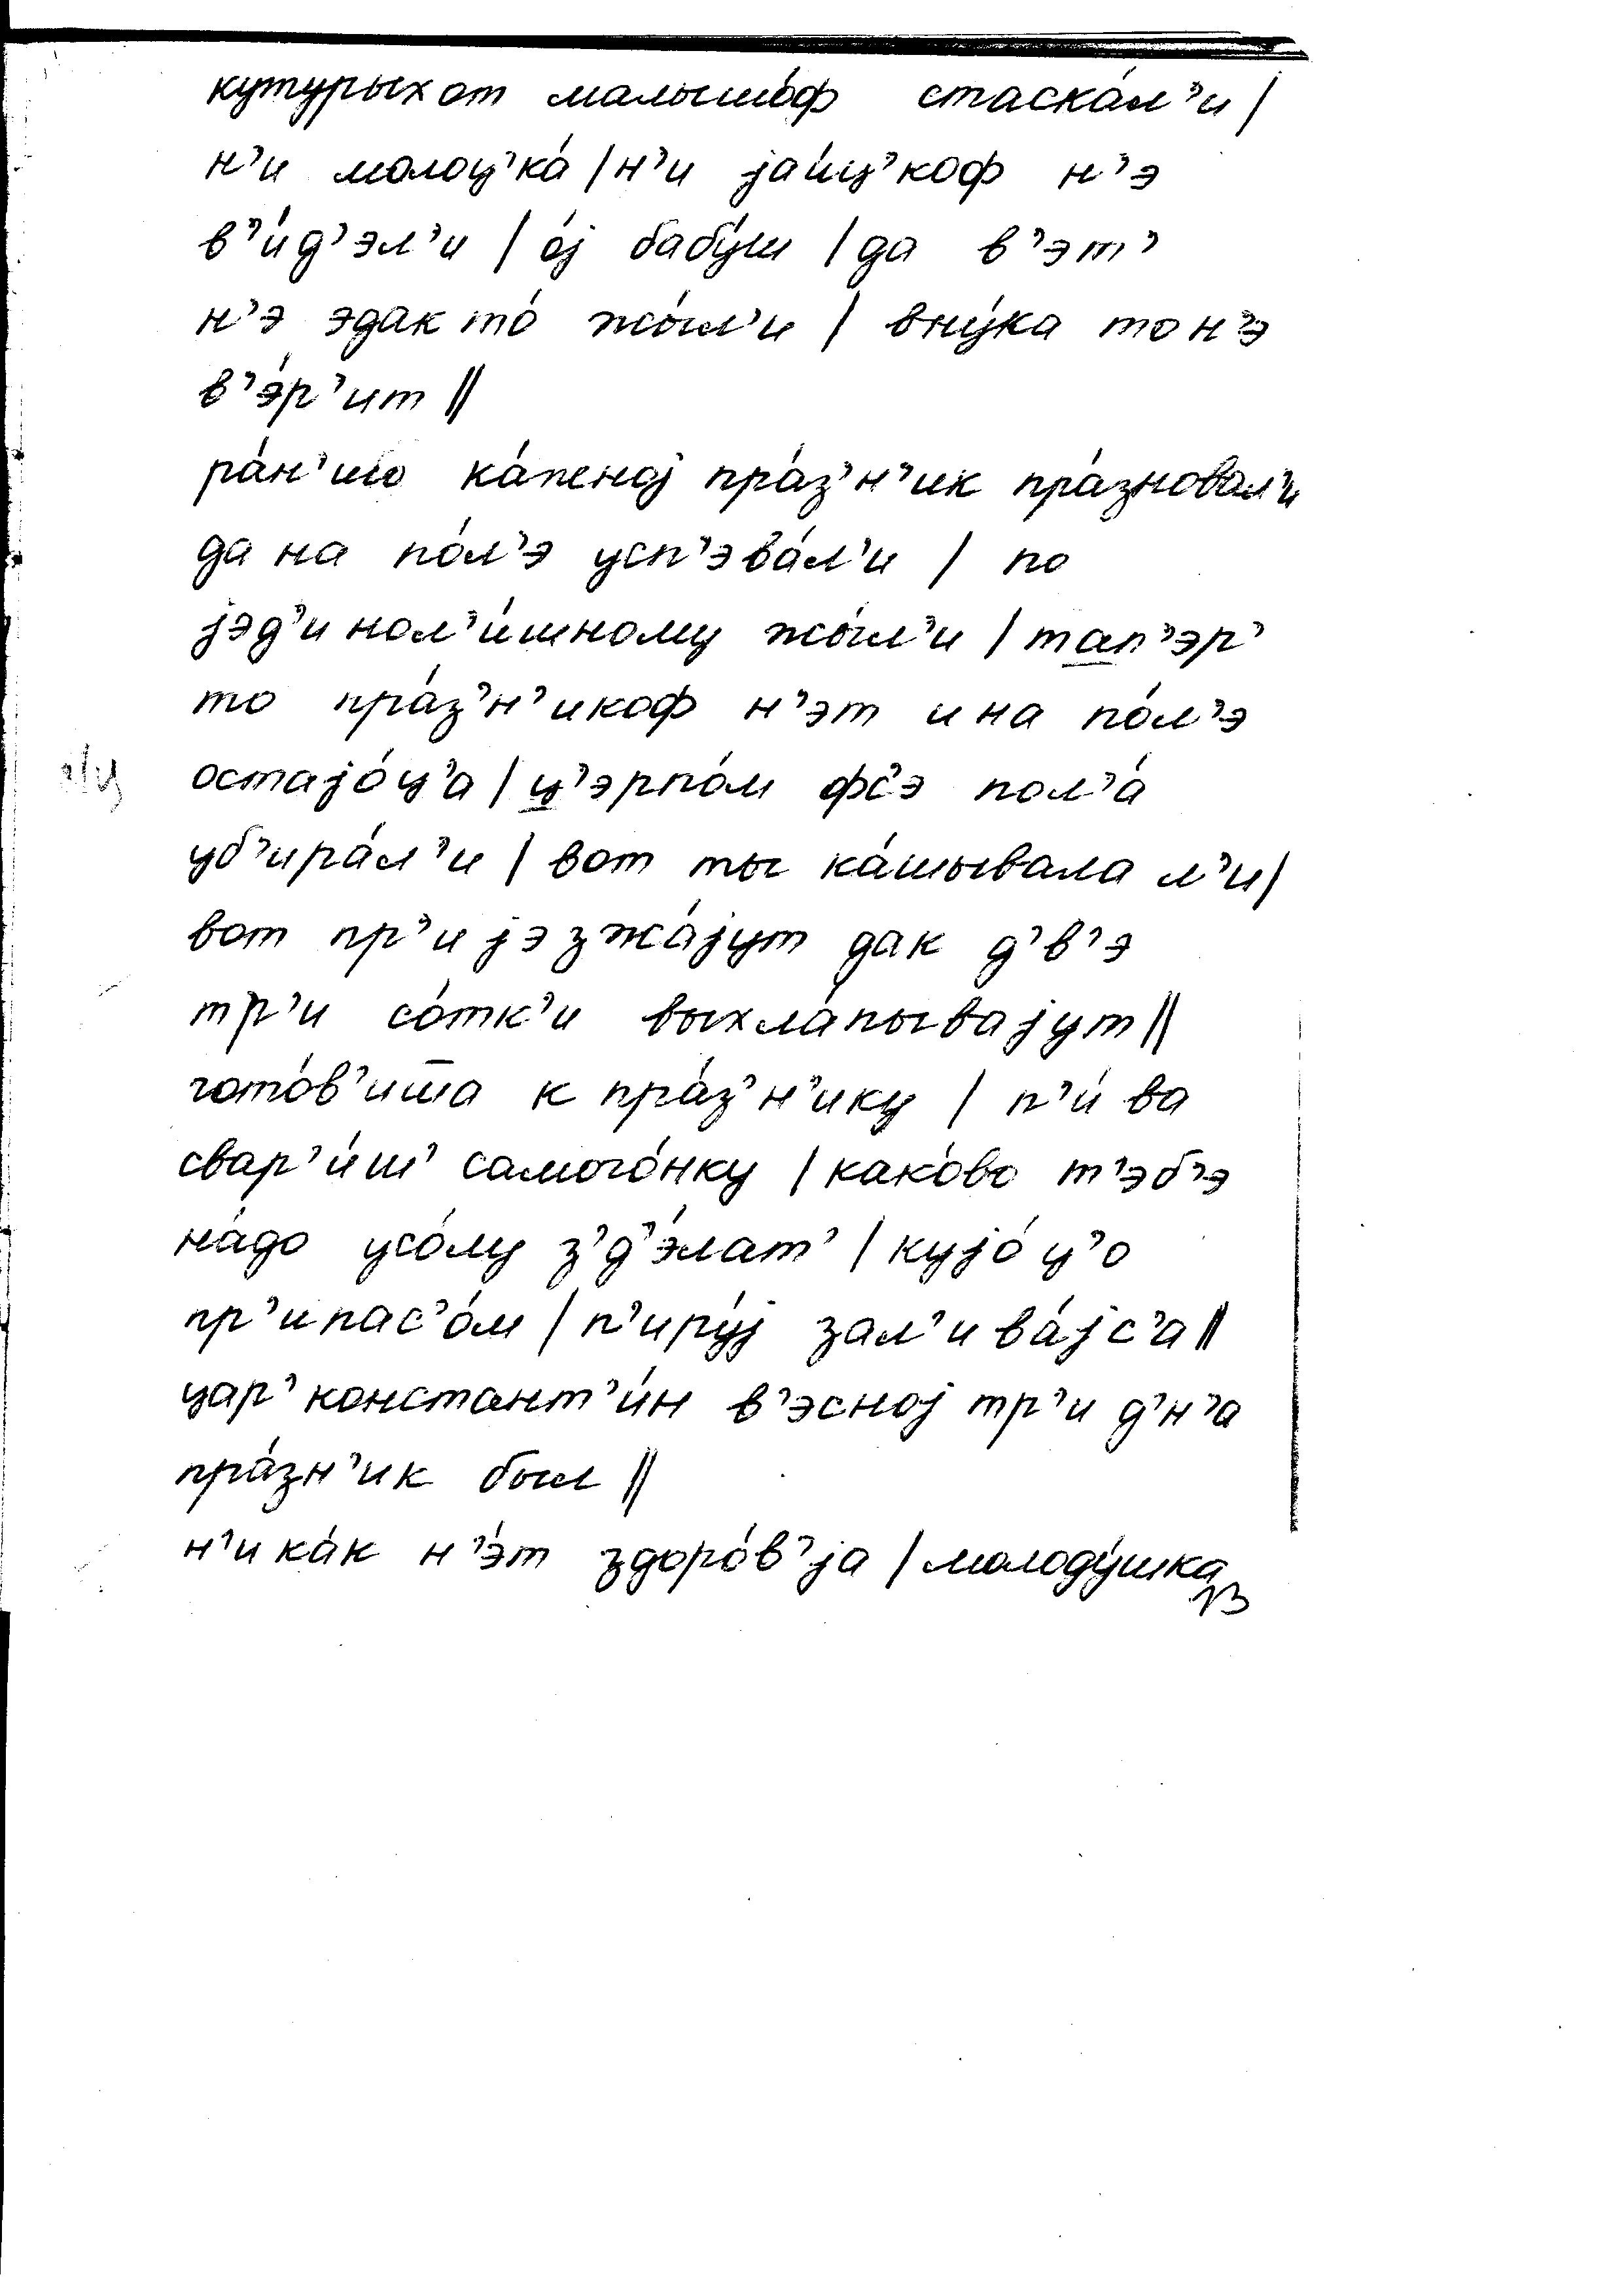 кутурых от малышо́ф стаска́л’и |
н’и молоц’ка́ | н’и jа́йц’коф н’э
в’и́д’эл’и | о́j бабу́ш | да в’эт’
н’э эдак то́ жы́л’и | вну́ка то н’э
в’э́р’ит ||
ра́н’шо ка́женоj пра́з’н’ик пра́зновал’и
да на по́л’э усп’эва́л’и | по
jэд’инол’и́шному жы́л’и | тап’эр’
то пра́з’н’икоф н’эт и на по́л’э
остаjо́ц’а | ц’эрпо́м фс’э пол’а́
уб’ира́л’и | вот ты ка́шывала л’и |
вот пр’иjэзжа́jут дак д’в’э
тр’и со́тк’и выхла́пываjут ||
гото́в’иш̅а к пра́з’н’ику | п’и́ва
свар’и́ш’ самого́нку | како́во т’эб’э
на́до усо́му з’д’э́лат’ | куjо́ ц’о
пр’ипас’о́м | п’иру́j зал’ива́jс’а ||
цар’ констант’и́н в’эсноj тр’и д’н’а
пра́зн’ик был ||
н’ика́к н’э́т здоро́в’jа | молоду́шка
13